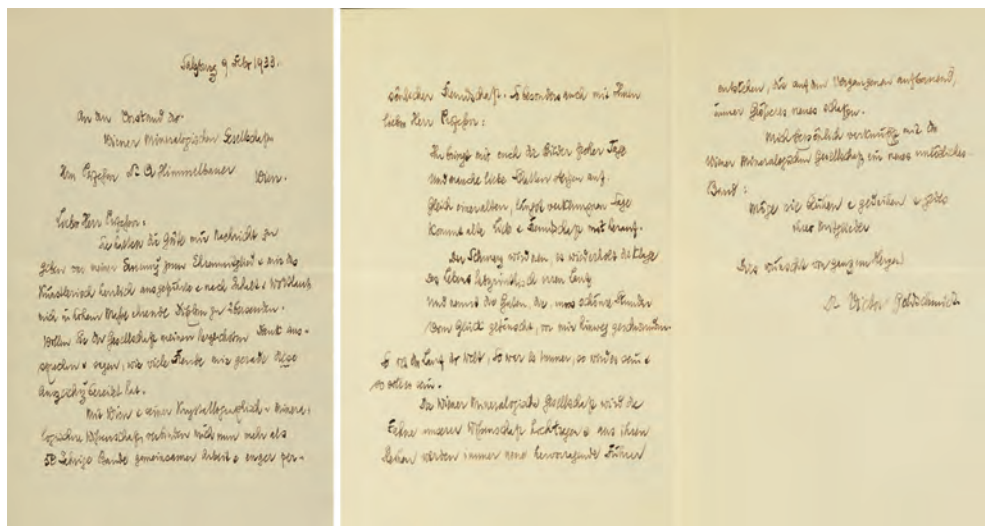 Salzburg 9 Febr 1933.
An den Vorstand der
Wiener Mineralogischen Gesellschaft
Herrn Professor Dr A Himmelbauer Wien.
Lieber Herr Professor.
Sie hatten die Güte mir Nachricht zu
geben von meiner Ernennung zum Ehrenmitglied & mir das
künstlerisch herrlich ausgeführte & nach Inhalt & Wortlaut
mich in hohem Maße ehrende Diplom zu übersenden.
Wollen Sie der Gesellschaft meinen herzlichsten Dank aus-
sprechen & sagen, wie viele Freude mir gerade diese
bereitet hat.
Mit Wien & seiner Krystallographisch-Minera-
logischen Wissenschaft verbinden mich nun mehr als
50 Jährige Bande gemeinsamer Arbeit & enger per-
sönlicher Freundschaft. So besonders auch mit Ihnen
lieber Herr Professor:
Ihr bringt mit euch die Bilder froher Tage
Und manche liebe Schatten steigen auf.
Gleich einer alten, halbverklungnen Sage
Kommt alte Lieb & Freundschaft mit herauf.
Der Schmerz wird neu, es wiederholt die Klage
Des Lebens labyrinthisch irren Lauf
Und nennt die Guten, die, ums schöne Stunden
Vom Glück getäuscht, vor mir hinweg geschwunden.
So ist der Lauf der Welt, so war es immer, so wird es sein &
so soll es sein.
Die Wiener Mineralogische Gesellschaft wird die
Fahne unserer Wissenschaft hochtragen & aus ihren
Reihen werden immer neue hervorragende Führer
entstehen, die auf dem Vergangenen aufbauend,
immer Größeres neues schaffen.
Mich persönlich verknüpft mit der
Wiener Mineralogischen Gesellschaft ein neues
Band:
Möge sie blühen & gedeihen &
ihrer Mitglieder
Dies wünscht von ganzem Herzen
Dr Victor Goldschmidt